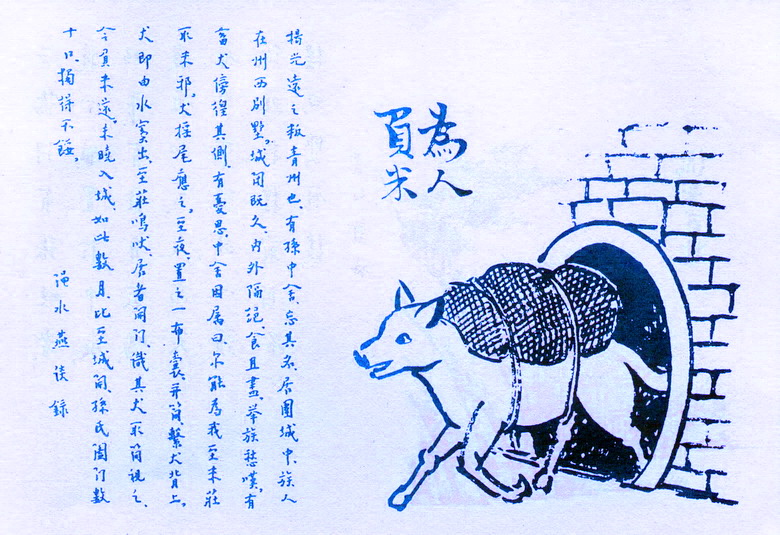 為人
買米
楊光遠之叛青州也、有孫中舍、忘其名、居圍城中、族人
在州西別墅。城閉既久、內外隔絕、食且盡、舉族愁嘆。有
畜犬傍徨其側、有憂思、中舍因屬曰、尔能為我至米莊
取米邪。犬搖尾應之。至夜、置之一布囊、并簡、繫犬背上。
犬即由水竇出、至莊鳴吠、居者開門、識其犬、取簡視之、
令負米還、未曉入城、如此數月、比至城開、孫氏闔門數
十口、獨得不餒。
澠水燕談錄